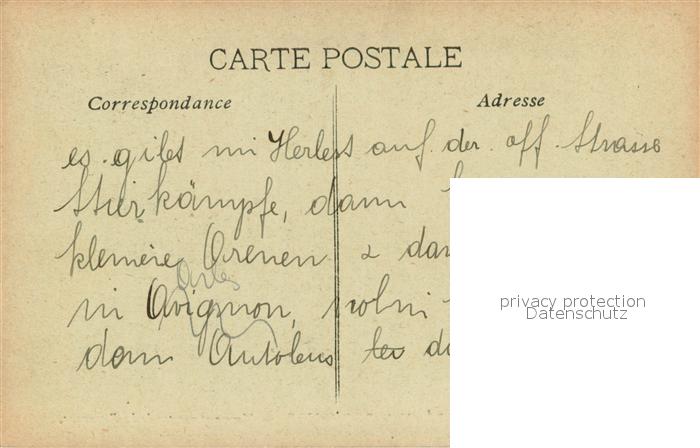 CARTE POSTALE
Correspondance
Adresse
es gibt im Herbst auf der off. Strasse
Stierkämpfe, dann
kleinere Arenen & dan
Arles
in Avignon, wohin
dann Autobus
privacy protection
Datenschutz